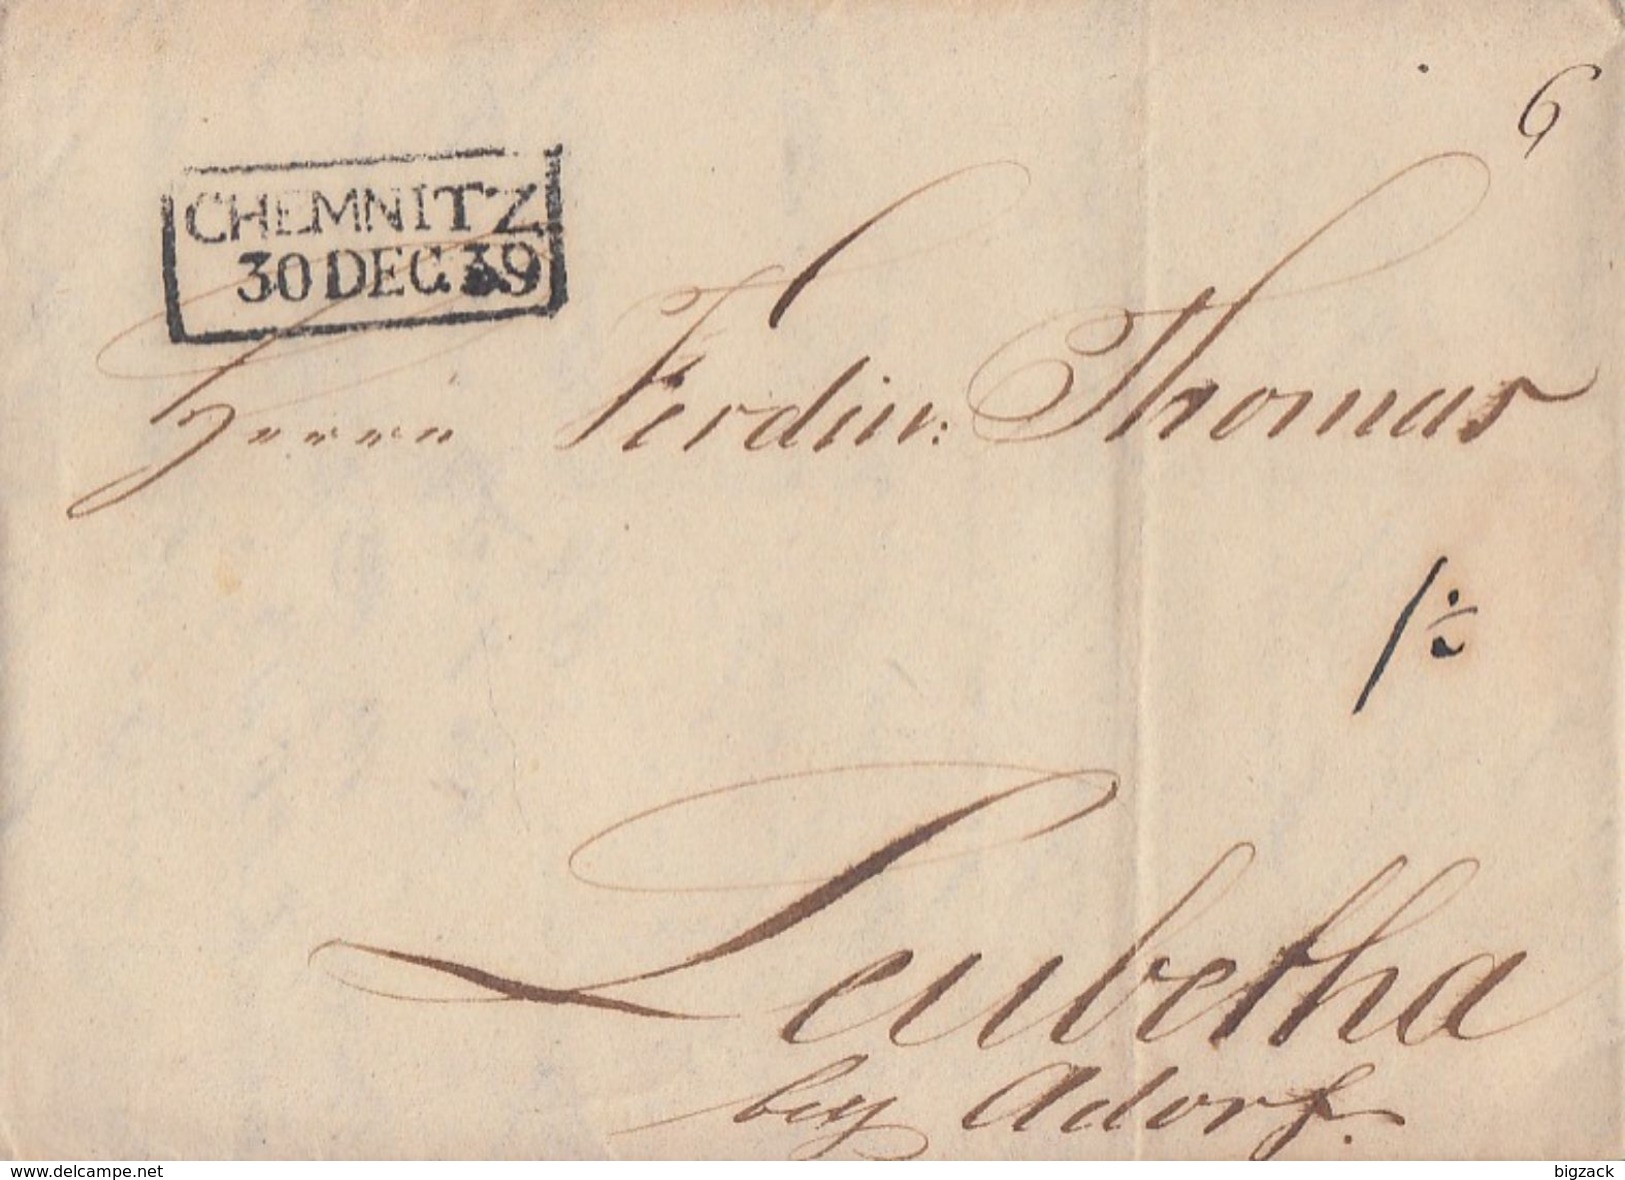 6
CHEMNITZ
30 DEC. 39
Herrn Ferdin: Thomas
Leubetha
bey Adorf.
www.delcampe.net
bigzack